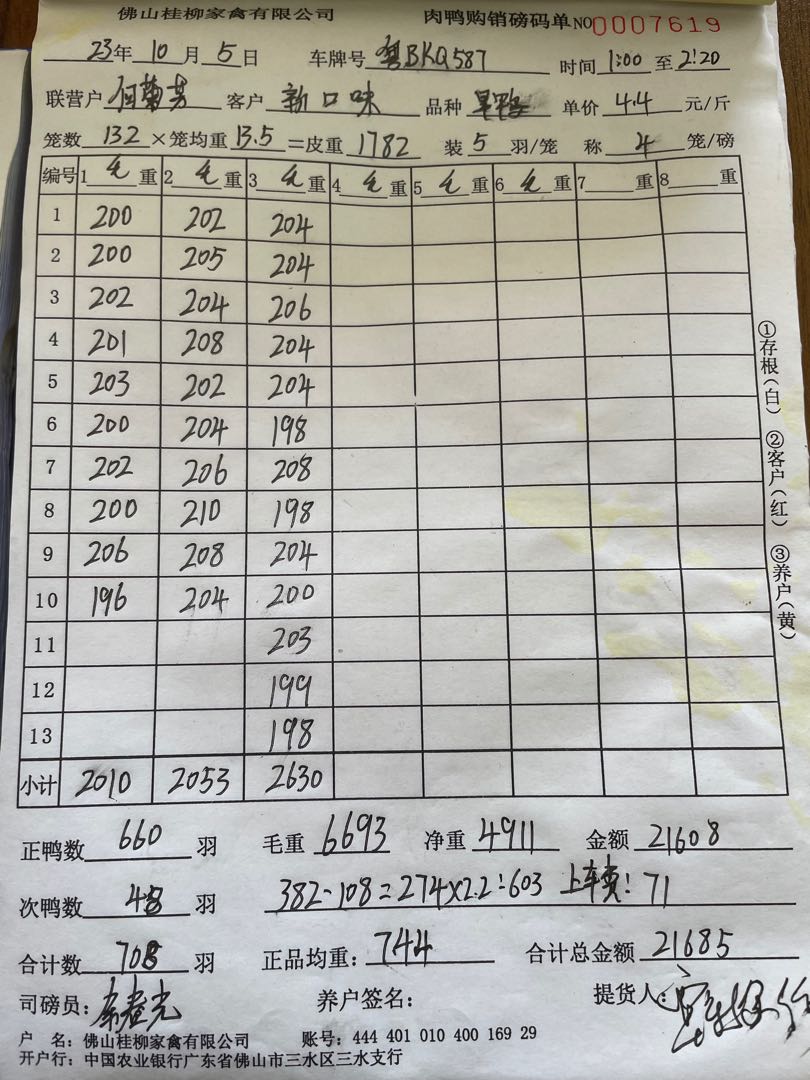 佛山桂柳家禽有限公司 肉鸭购销磅码单 NO0007619
23年 10 月 5 日 车牌号 粤BKQ587 时间 1:00 至 2:20
联营户 何菊芳 客户 新口味 品种 旱鸭 单价 4.4 元/斤
笼数 132 ×笼均重 13.5 =皮重 1782 装 5 羽/笼 称 4 笼/磅
编号 1 毛 重 2 毛 重 3 毛 重 4 毛 重 5 毛 重 6 毛 重 7 重 8 重
1 200 202 204
2 200 205 204
3 202 204 206
4 201 208 204
5 203 202 204
6 200 204 198
7 202 206 208
8 200 210 198
9 206 208 204
10 196 204 200
11 203
12 199
13 198
小计 2010 2053 2630
正鸭数 660 羽 毛重 6693 净重 4911 金额 21608
次鸭数 48 羽 382-108=274×2.2=603 上车费: 71
合计数 708 羽 正品均重: 744 合计总金额 21685
司磅员: 养户签名: 提货人:
户 名: 佛山桂柳家禽有限公司 账号: 444 401 010 400 169 29
开户行: 中国农业银行广东省佛山市三水区三水支行
①存根(白) ②客户(红) ③养户(黄)